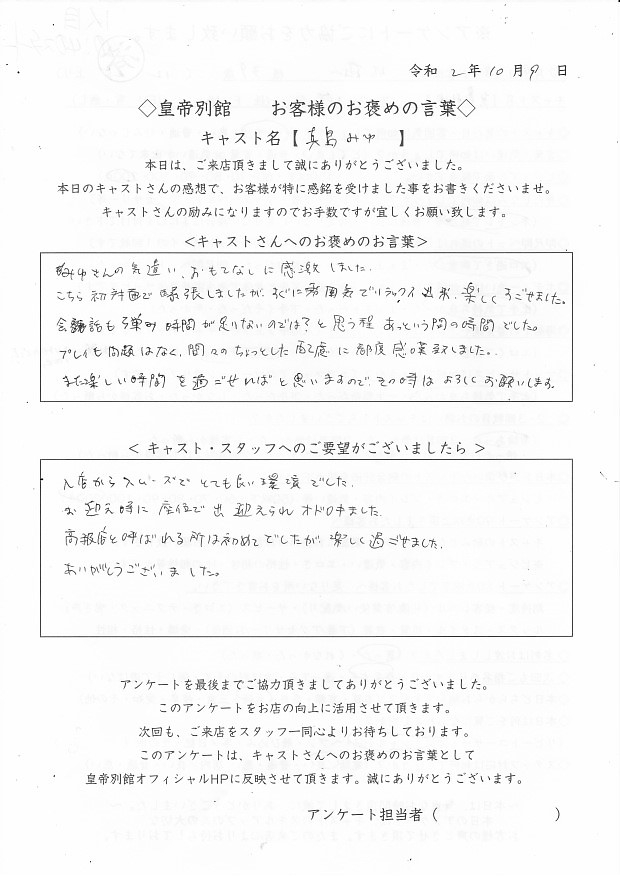 令和 2 年 10 月 9 日
◇皇帝別館　お客様のお褒めの言葉◇
キャスト名【 真島みゆ 】
本日は、ご来店頂きまして誠にありがとうございました。
本日のキャストさんの感想で、お客様が特に感銘を受けました事をお書きくださいませ。
キャストさんの励みになりますのでお手数ですが宜しくお願い致します。
<キャストさんへのお褒めのお言葉>
さんの気遣い、おもてなしに感激しました。
こちら初対面で緊張しましたが、すぐに雰囲気でリラックス出来、楽しくすごせました。
会話も弾み時間が足りないのでは?と思う程あっという間の時間でした。
プレイも問題はなく、間々のちょっとした配慮に都度感嘆致しました。
また楽しい時間を過ごせればと思いますので、その時はよろしくお願いします。
< キャスト・スタッフへのご要望がございましたら >
入店からスムーズでとても良い環境でした。
お迎え時に座位で出迎えられオドロキました。
高級店と呼ばれる所は初めてでしたが楽しく過ごせました。
ありがとうございました。
アンケートを最後までご協力頂きましてありがとうございました。
このアンケートをお店の向上に活用させて頂きます。
次回も、ご来店をスタッフ一同心よりお待ちしております。
このアンケートは、キャストさんへのお褒めのお言葉として
皇帝別館オフィシャルHPに反映させて頂きます。誠にありがとうございます。
アンケート担当者（　　　　　　）